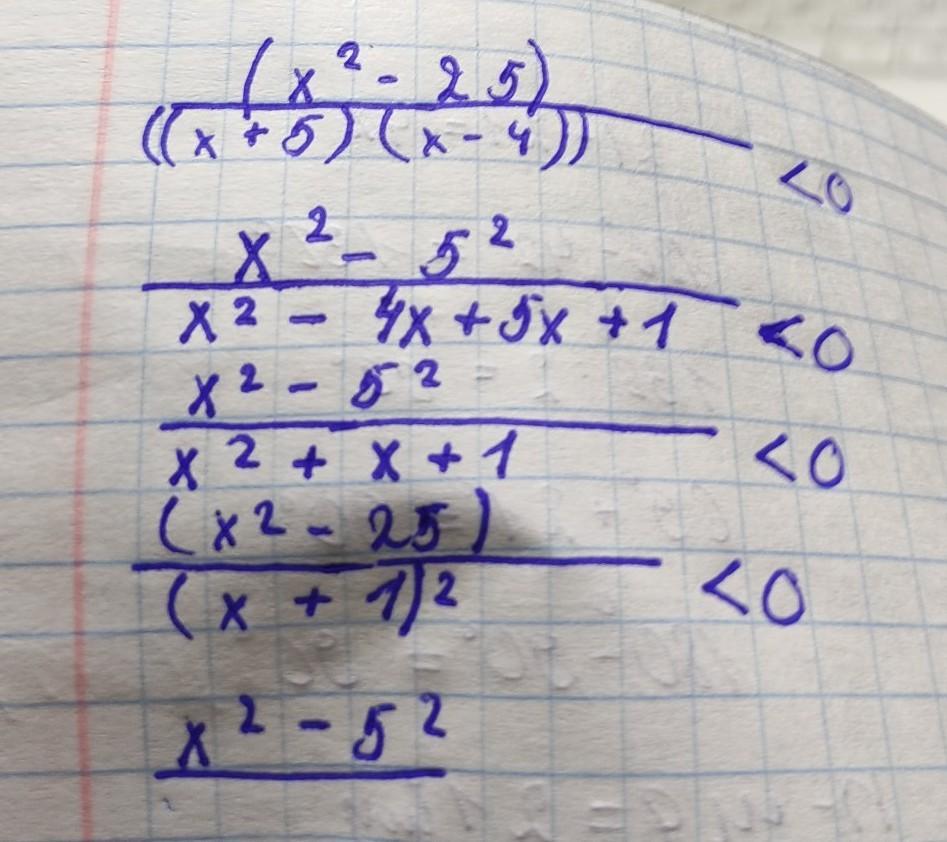 (x² - 25)
((x + 5) (x - 4)) < 0
x² - 5²
x² - 4x + 5x + 1 < 0
x² - 5²
x² + x + 1 < 0
(x² - 25)
(x + 1)² < 0
x² - 5²